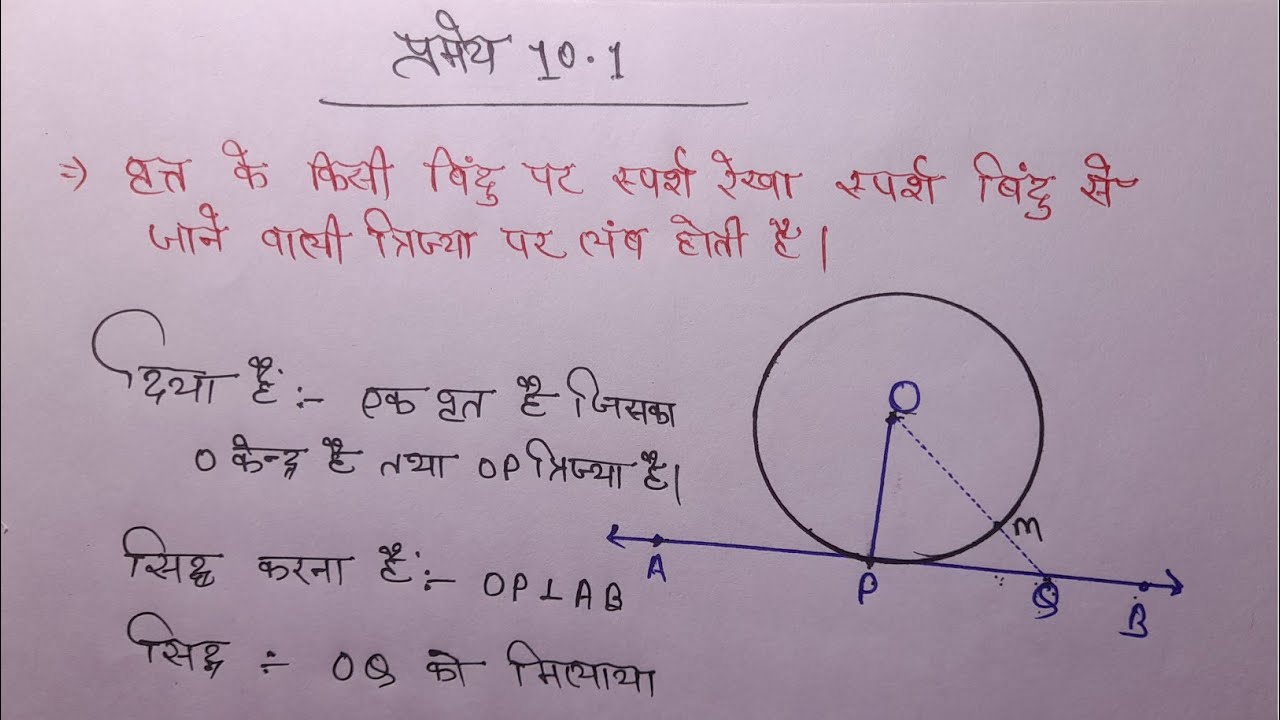 प्रमेय 10.1
=> वृत्त के किसी बिंदु पर स्पर्श रेखा स्पर्श बिंदु से
जाने वाली त्रिज्या पर लंब होती है।
दिया है :- एक वृत है जिसका
O केन्द्र है तथा OP त्रिज्या है।
सिद्ध करना है :- OP⊥AB
सिद्ध :- OQ को मिलाया
O
M
A
P
Q
B